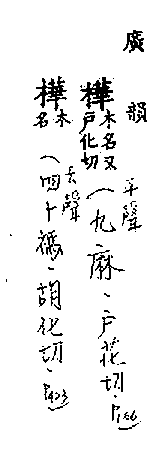 廣韻
樺 木名又戶化切 平聲(九麻、戶花切、P166
樺 木名 去聲(四十禡、胡化切、P423